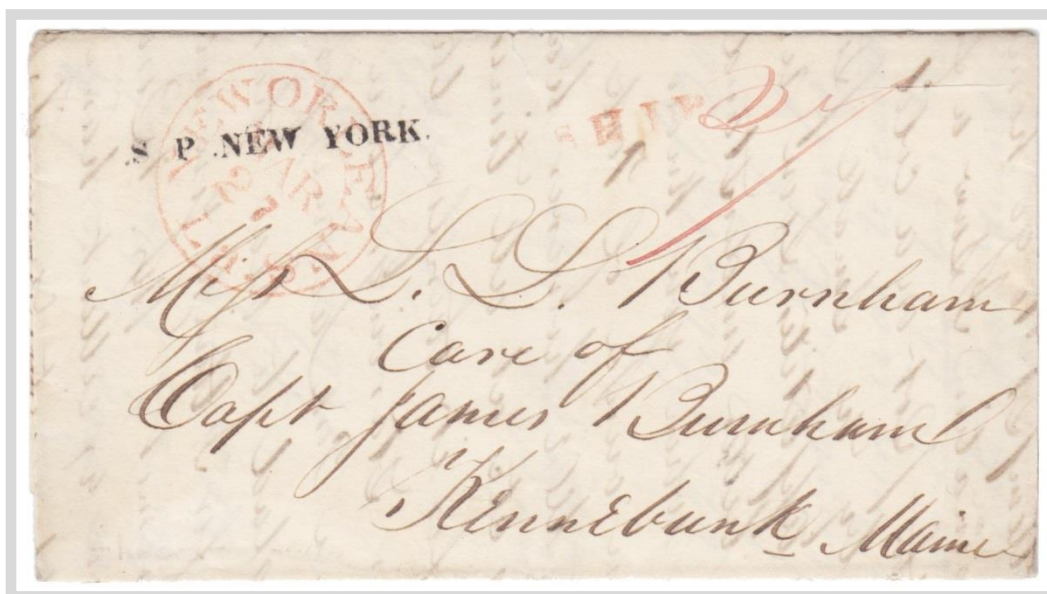 S P .NEW YORK.
NEW ORLEANS
MAR
27
SHIP 27
Miss L. L. Burnham
Care of
Capt James Burnham
Kennebunk Maine